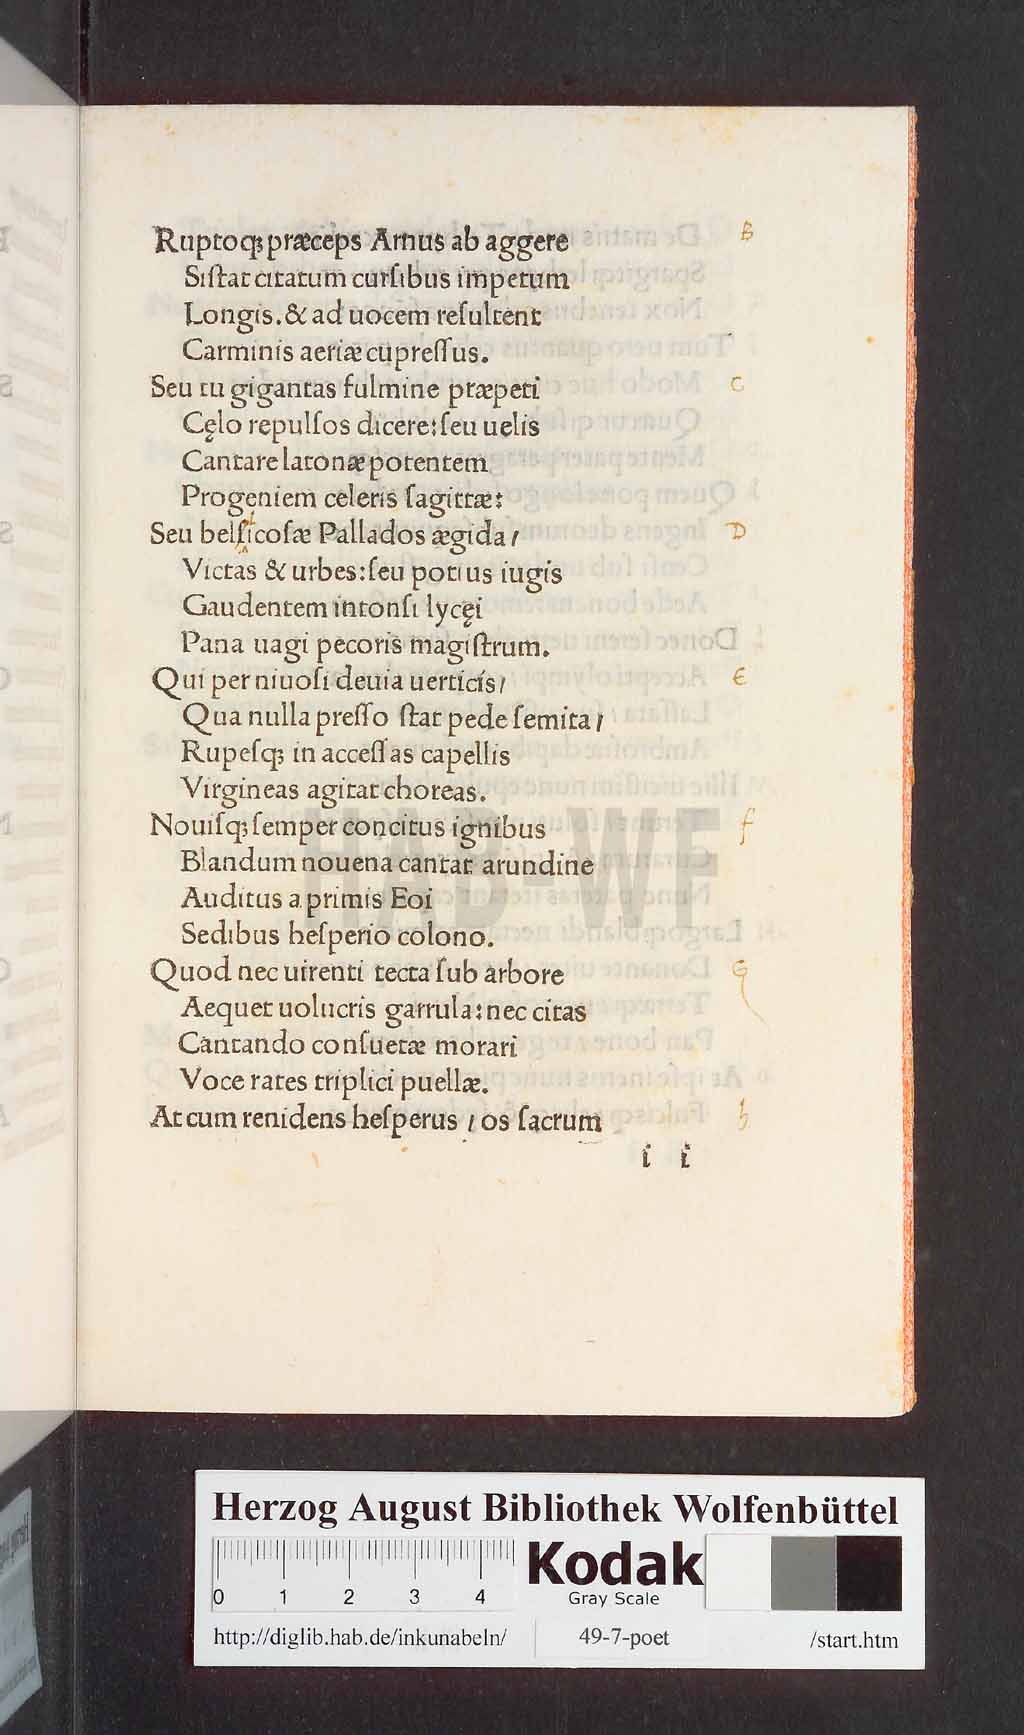 Ruptoq; præceps Arnus ab aggere B
Siſtat citatum curſibus impetum
Longis. & ad uocem reſultent
Carminis aeriæ cupreſſus.
Seu tu gigantas fulmine præpeti C
Cęlo repulſos dicere: ſeu uelis
Cantare latonæ potentem
Progeniem celeris ſagittæ:
Seu belſicoſæ Pallados ægida / D
Victas & urbes: ſeu potius iugis
Gaudentem intonſi lycęi
Pana uagi pecoris magiſtrum.
Qui per niuoſi deuia uerticis / E
Qua nulla preſſo ſtat pede ſemita /
Rupeſq; in acceſſas capellis
Virgineas agitat choreas.
Nouiſq; ſemper concitus ignibus f
Blandum nouena cantat arundine
Auditus a primis Eoi
Sedibus heſperio colono.
Quod nec uirenti tecta ſub arbore G
Aequet uolucris garrula: nec citas
Cantando conſuetæ morari
Voce rates triplici puellæ.
At cum renidens heſperus / os ſacrum h
i i
HAB-WF
Herzog August Bibliothek Wolfenbüttel
0 1 2 3 4
Kodak
Gray Scale
http://diglib.hab.de/inkunabeln/ 49-7-poet /start.htm